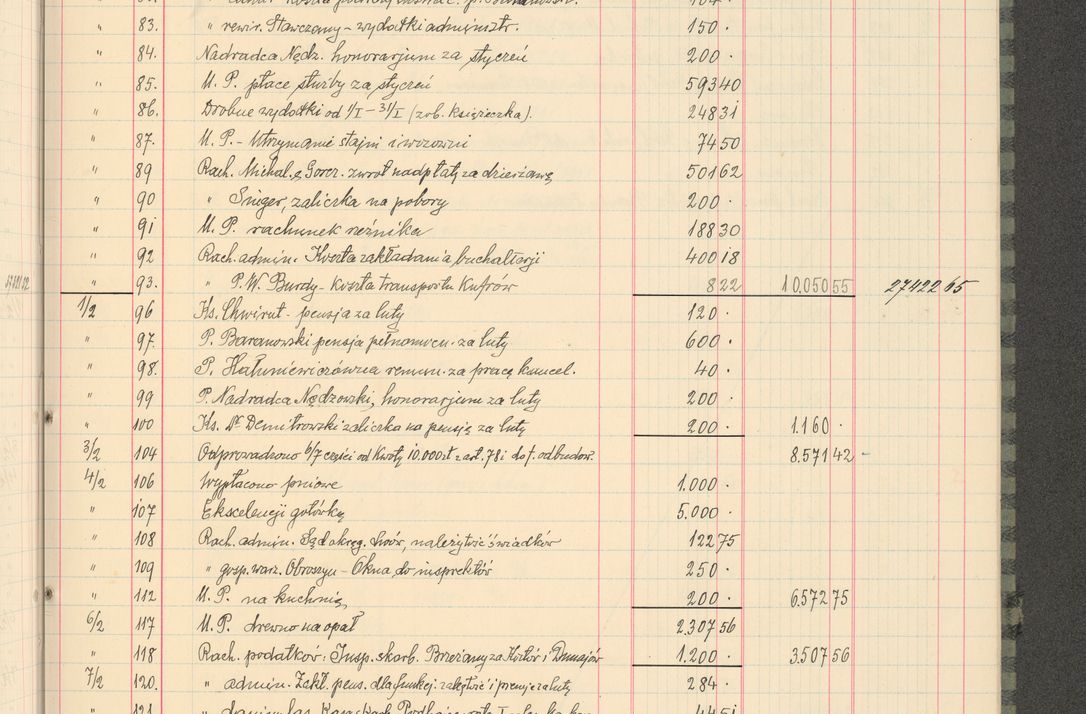 " 83. " rewir. Stawczany - wydatki administr. 150 ·
" 84. Nadradca Nędz. honorarjum za styczeń 200 ·
" 85. M. P. płace służby za styczeń 593 40
" 86. Drobne wydatki od 1/I – 31/I (zob. książeczka). 248 31
" 87. M. P. - Utrzymanie stajni i wozowni 74 50
" 89 Rach. Michał. & Gorcz. zwrot nadpłaty za dzierżawę 501 62
" 90 " Sniger, zaliczka na pobory 200 ·
" 91 M. P. rachunek rzeźnika 188 30
" 92 Rach. admin. Koszta zakładania buchalterji 400 18
" 93. " P. W. Burdy - Koszta transportu Kufrów 8 22 10.050 55 27422 65
1/2 96 Ks. Chwirut - pensja za luty 120 ·
" 97. P. Baranowski pensja pełnomocn. za luty 600 ·
" 98. P. Hałuniewiczówna remun. za pracę kancel. 40 ·
" 99 P. Nadradca Nędzowski, honorarjum za luty 200 ·
" 100 Ks. Dr Demitrowski zaliczka na pensję za luty 200 · 1.160 ·
3/2 104 Odprowadzono 6/7 części od Kwoty 10.000 zł z art. 781 do f. odbudow. 8.571 42 -
4/2 106 Wypłacono pniowe 1.000 ·
" 107 Ekscelencji gotówką 5.000 ·
" 108 Rach. admin. Sąd okręg. Lwów, należytość świadków 122 75
" 109 " gosp. warz. Obroszyn - Okna do inspektów 250 ·
" 112 M. P. na kuchnię 200 · 6.572 75
6/2 117 M. P. drewno na opał 2.307 56
" 118 Rach. podatków: Insp. skarb. Brzeżany za Kozłów i Dunajów 1.200 · 3.507 56
7/2 120. " admin. Zakł. pens. dla funkcj. zaległość i premje za luty 284 ·
" 121